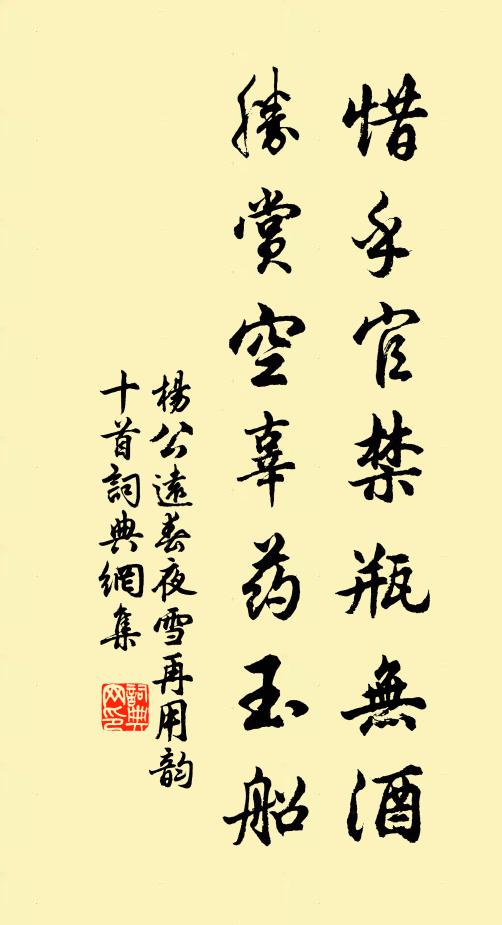 惜乎官禁瓶無酒
勝賞空辜药玉船
楊公遠春夜雪再用韵
十首詞典網集
詞典网印